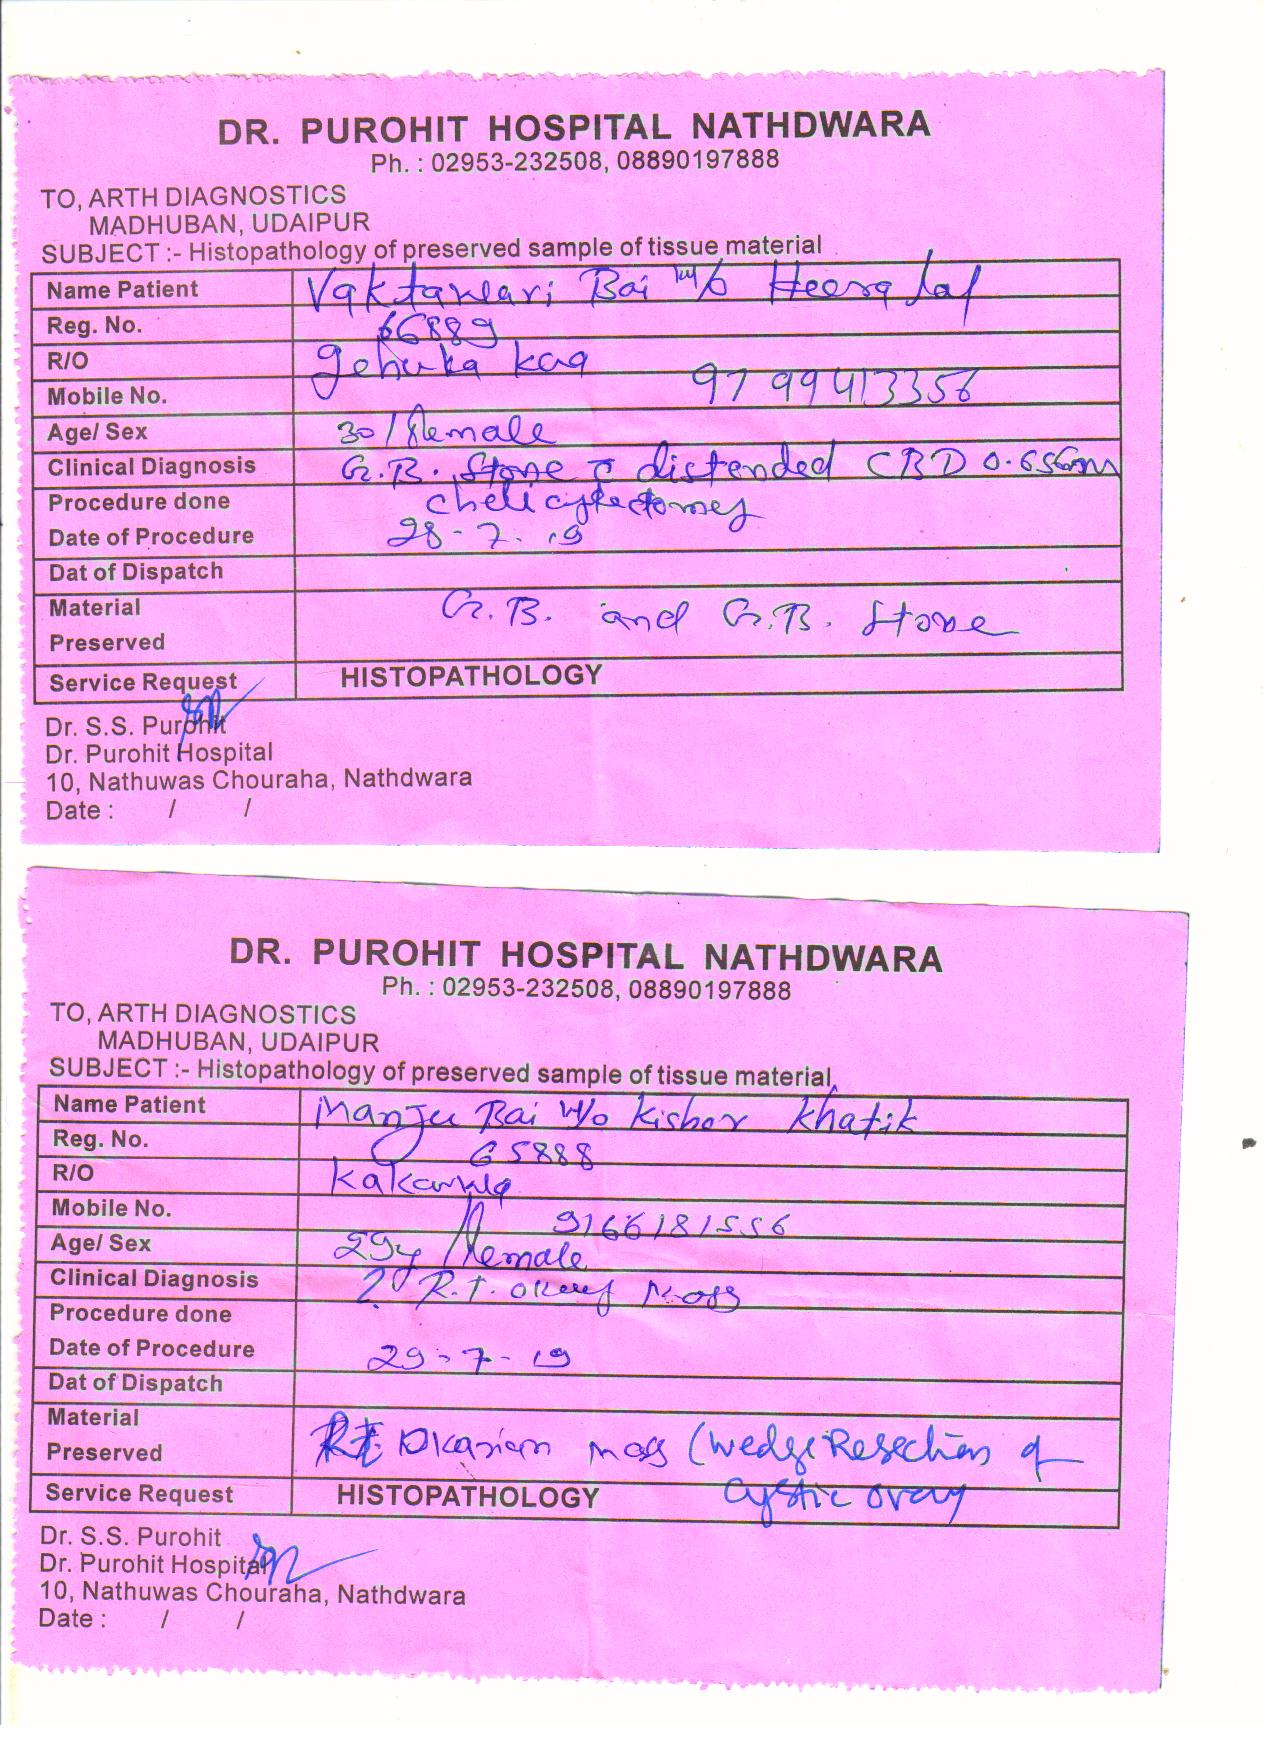 DR. PUROHIT HOSPITAL NATHDWARA
Ph. : 02953-232508, 08890197888
TO, ARTH DIAGNOSTICS
MADHUBAN, UDAIPUR
SUBJECT :- Histopathology of preserved sample of tissue material
Name Patient Vaktawari Bai w/o Heera lal
Reg. No. 66889
R/O
Mobile No. 9799413356
Age/ Sex 30/female
Clinical Diagnosis G.B. Stone c̄ distended CBD
Procedure done
Date of Procedure 28-7-19
Dat of Dispatch
Material G.B. and G.B. Stone
Preserved
Service Request HISTOPATHOLOGY
Dr. S.S. Purohit
Dr. Purohit Hospital
10, Nathuwas Chouraha, Nathdwara
Date : / /
DR. PUROHIT HOSPITAL NATHDWARA
Ph. : 02953-232508, 08890197888
TO, ARTH DIAGNOSTICS
MADHUBAN, UDAIPUR
SUBJECT :- Histopathology of preserved sample of tissue material
Name Patient Manju Bai w/o Kishor Khatik
Reg. No. 65888
R/O
Mobile No. 9166181556
Age/ Sex 29y/female
Clinical Diagnosis ? R.T. Mass
Procedure done
Date of Procedure 29-7-19
Dat of Dispatch
Material Rt. mass (wedge Resection of
Preserved
cystic ovary
Service Request HISTOPATHOLOGY
Dr. S.S. Purohit
Dr. Purohit Hospital
10, Nathuwas Chouraha, Nathdwara
Date : / /